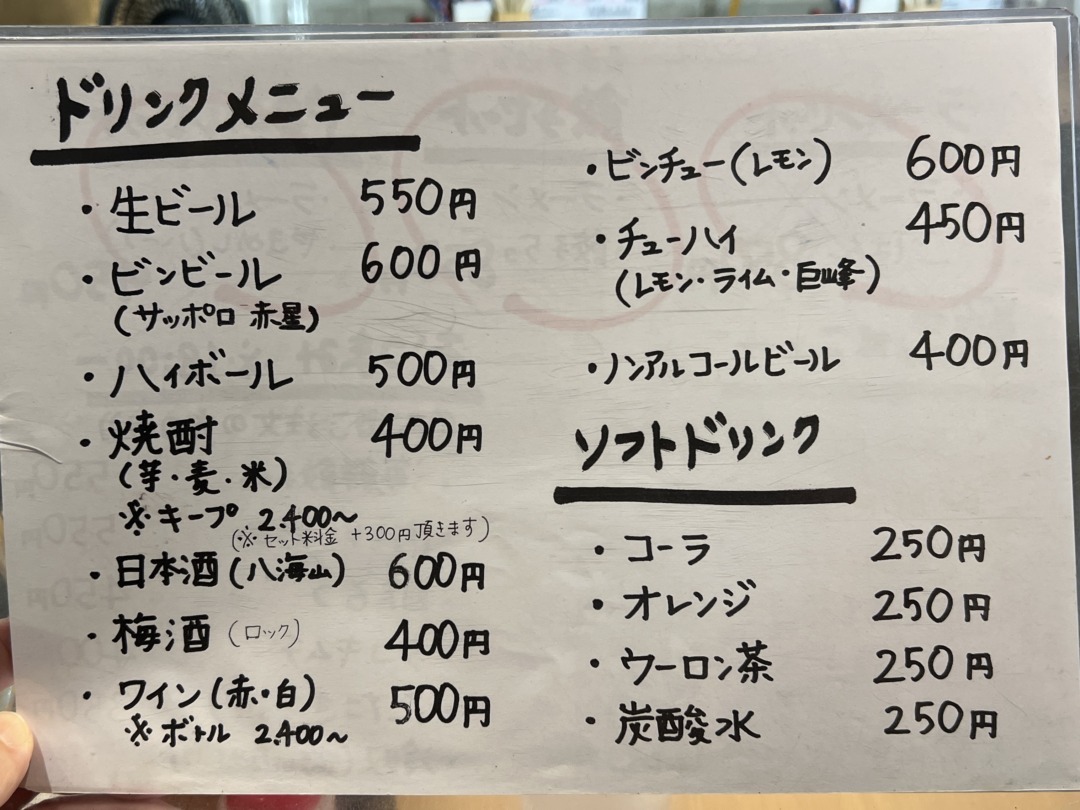 ドリンクメニュー
・生ビール 550円
・ビンビール 600円
(サッポロ 赤星)
・ハイボール 500円
・焼酎 400円
(芋・麦・米)
※キープ 2.400〜
(※セット料金 +300円頂きます)
・日本酒(八海山) 600円
・梅酒(ロック) 400円
・ワイン(赤・白) 500円
※ボトル 2.400〜
・ビンチュー(レモン) 600円
・チューハイ 450円
(レモン・ライム・巨峰)
・ノンアルコールビール 400円
ソフトドリンク
・コーラ 250円
・オレンジ 250円
・ウーロン茶 250円
・炭酸水 250円